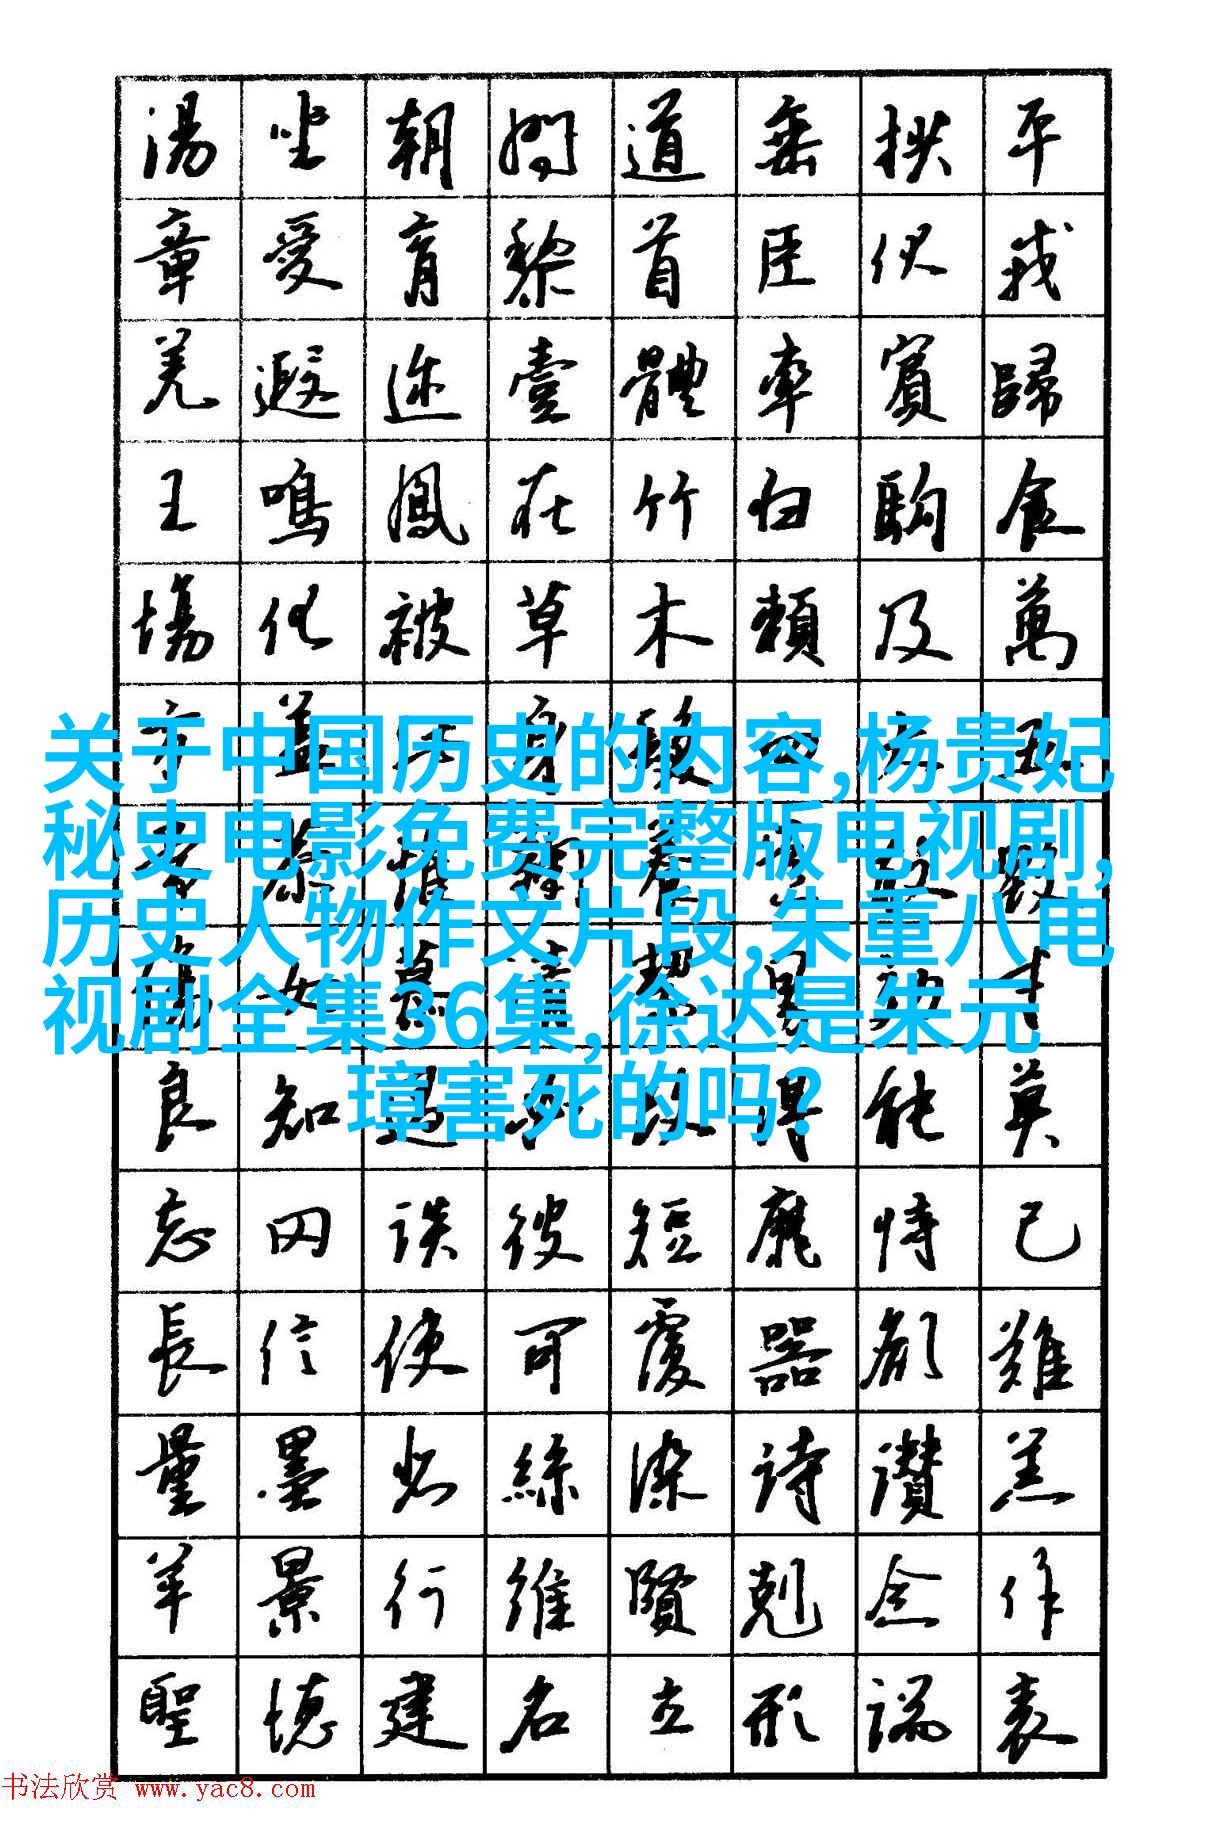 湯坐朝問道垂拱平
章愛育黎首臣伏戎
羌遐迩壹體率賓歸
王鳴鳳在竹白駒食
場化被草木賴及萬
方蓋身髮
关于中国历史的内容,杨贵妃
秘史电影免费完整版电视剧,
历史人物作文片段,朱重八电
视剧全集36集,徐达是朱元
璋害死的吗?
良知過必改得能莫
忘罔談彼短靡恃己
長信使可覆器欲難
量墨悲絲染詩讃羔
羊景行維賢剋念作
聖德建名立形端表
书法欣赏 www.yac8.com